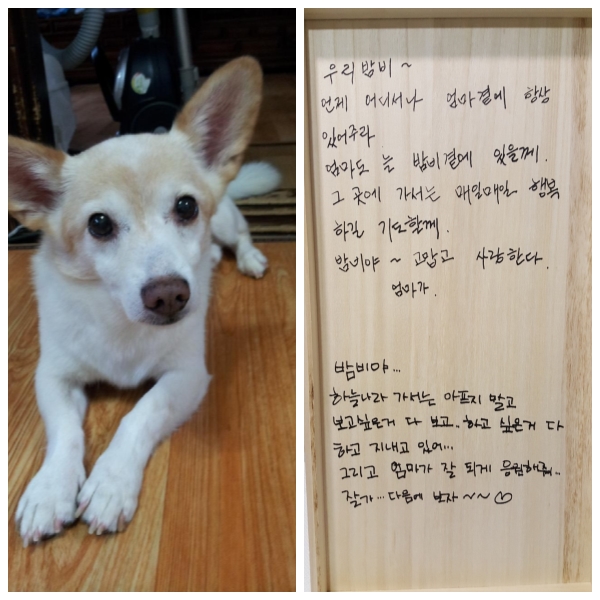 우리 밤비 ~
언제 어디서나 엄마곁에 항상
있어주라
엄마도 늘 밤비곁에 있을께.
그 곳에 가서는 매일매일 행복
하길 기도할께.
밤비야 ~ 고맙고 사랑한다.
엄마가.
밤비야...
하늘나라 가서는 아프지 말고
보고싶은거 다 보고.. 하고 싶은거 다
하고 지내고 있어...
그리고 엄마가 잘 되게 응원해줘..
잘가... 다음에 보자 ~~ ♡